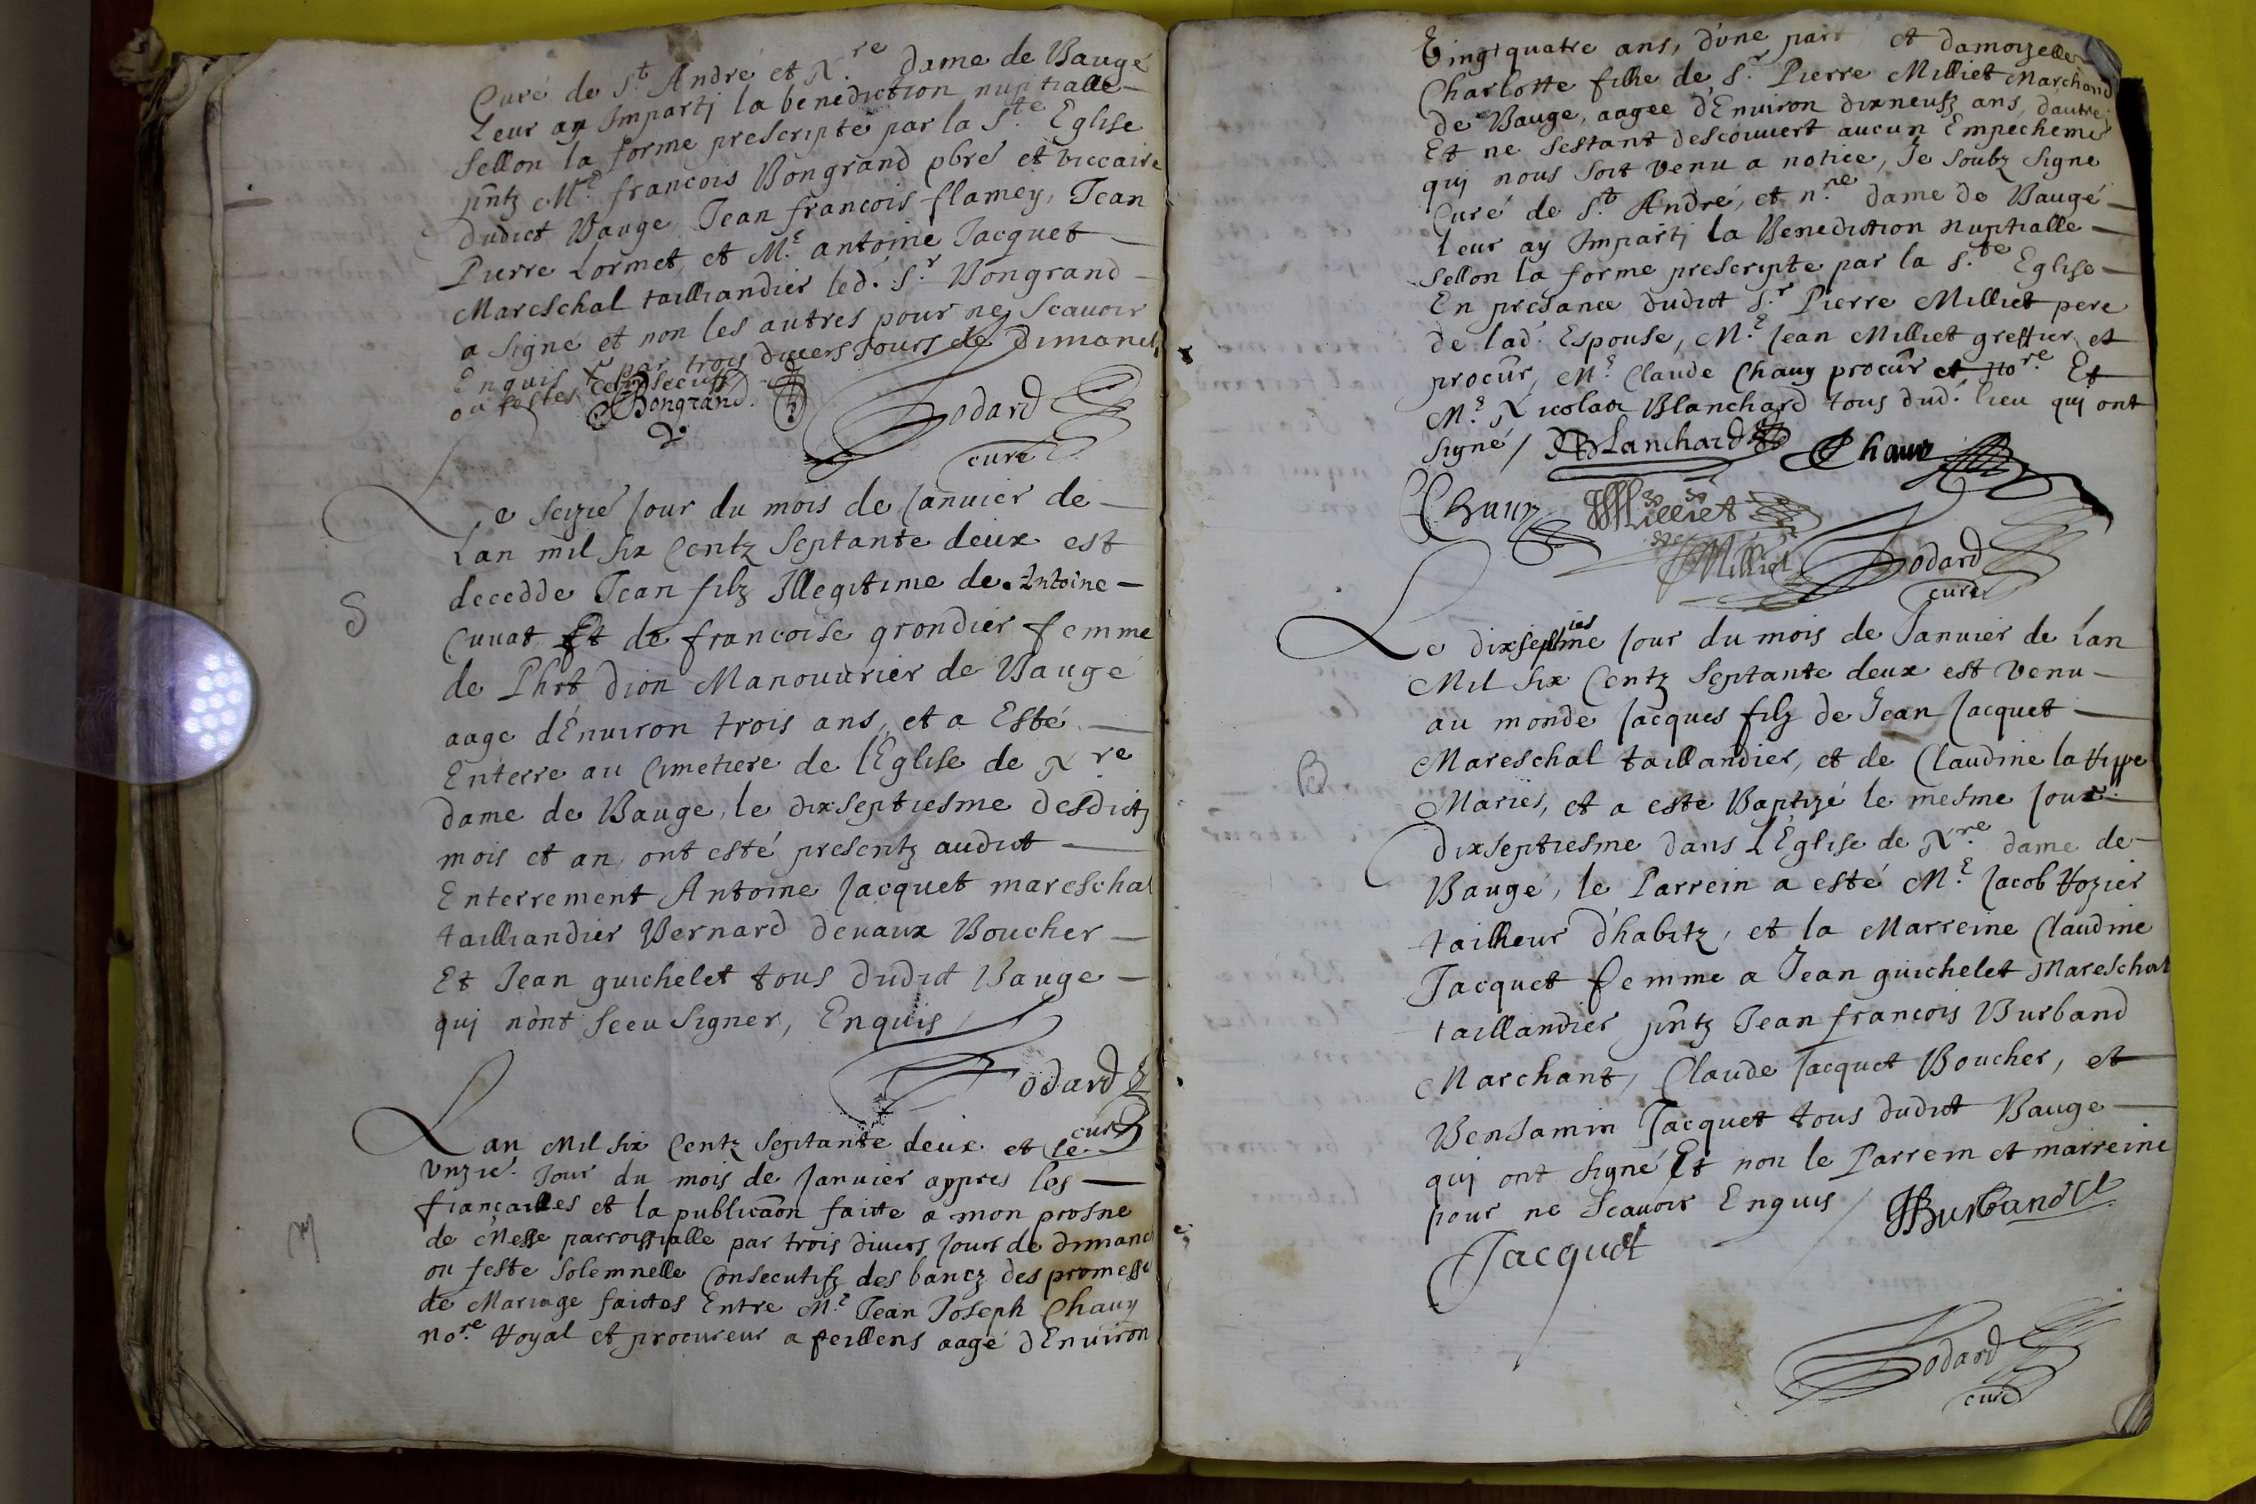 Curé de S.t André et N.re dame de Baugé
Leur ay Imparti la benediction nuptialle
Sellon la forme prescripte par la S.te Eglise
pñtz M.e francois Bongrand pbre et viccaire
dudict Bauge Jean francois flamey, Jean
Pierre Lormet, et M.e antoine Jacquet
Mareschal tailliandier led. S.r Bongrand
a signé et non les autres pour ne scavoir
Enquis + par trois divers Jours de dimanch
ou festes consecutifz
Bongrand
Godard
curé
Le seizie Jour du mois de Janvier de
Lan mil six Centz septante deux est
decedde Jean filz Illegitime de Antoine
Cuvat Et de francoise grondier femme
de Phet dion Manouvrier de Baugé
aage dEnviron trois ans, et a Esté
Enterre au Cimetiere de lEglise de N.re
dame de Bauge, le dixseptiesme desdictz
mois et an, ont esté presentz audict
Enterrement Antoine Jacquet mareschal
tailliandier Bernard devaux Boucher
Et Jean guichelet tous dudict Bauge
qui nont sceu signer, Enquis
Godard
curé
S
Lan Mil six Centz septante deux et le
unzie. Jour du mois de Janvier appres les
fiançailles et la publicaõn faitte a mon prosne
de Messe parroissialle par trois divers Jours de dimanch
ou feste solemnelle Consecutifz des bancz des promesse
de Mariage faictes Entre M.e Jean Joseph Chavy
no.re Royal et procureur a feillens aagé dEnviron
M
Vingtquatre ans, dúne part et damoizelle
Charlotte fille de S.r Pierre Milliet Marchand
de Bauge, aagee dEnviron dixneufz ans, dautre
Et ne sestant descouvert aucun Empecheme
qui nous soit venu a notice, Je soubz signe
Curé de S.t André, et n.re dame de Baugé
leur ay Imparti la Benediction nuptialle
sellon la forme prescripte par la S.te Eglise
En presance dudict S.r Pierre Milliet pere
de lad. Espouse, M.e Jean Milliet greffier et
procûr, M.e Claude Chavy procûr et no.re Et
M.e Nicolas Blanchard tous dud. lieu qui ont
signé / Blanchard Chavy
Chavy Milliet
Milliet Godard
curé
Le dixseptiesme Jour du mois de Janvier de Lan
Mil six Centz septante deux est venu
au monde Jacques filz de Jean Jacquet
Mareschal taillandier, et de Claudine la Hippe
Mariés, et a este Baptizé le mesme Jour
dixseptiesme dans LEglise de N.re dame de
Baugé, le Parrein a esté M.e Jacob Rozier
tailheur dhabitz, et la Marreine Claudine
Jacquet femme a Jean guichelet Mareschal
taillandier pñtz Jean francois Burband
Marchant, Claude Jacquet Boucher, et
Benjamin Jacquet tous dudict Bauge
qui ont signé Et non le Parrein et marreine
pour ne scavoir Enquis / Burband
Jacquet
Godard
curé
B